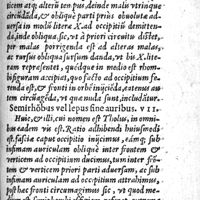 ticem atq; alterū ten pus, deinde malis vtrinque
circūdāda, & obliquè parti prius obuolutæ ad-
uersa in modū literæ X. ad occipitiū demittē-
da, inde obliqua, sic, vt à priori circuitu distet,
per malas porrigenda est ad alteras malas,
ac rursus quoq; sursum danda, vt bis X. lite-
ram repræsentet, quódque in medio est rhom-
bi figuram accipiat, quo facto ad occipitium fe-
renda est, & fronti in orbē inijciēda, eatenus au-
tem circūagēda, vt qua nuda sunt, includitur.
Semirhōbus vel lepus sine auribus. VII.
Huic, & illi, cui nomen est Tholus, in omni-
bus eadem vis est. Ratio adhibendi huiusmodi
est. fascia caput occipitio inijcimus, eamq; sub
infimam auriculam obliquè inter frontem &
verticem ad occipitium ducimus, tum inter frō-
tem & verticem priori parti aduersam, ac sub
infimam auriculam ad occipitium attrahimus,
post hæc fronti circumagimus sic, vt quod me-